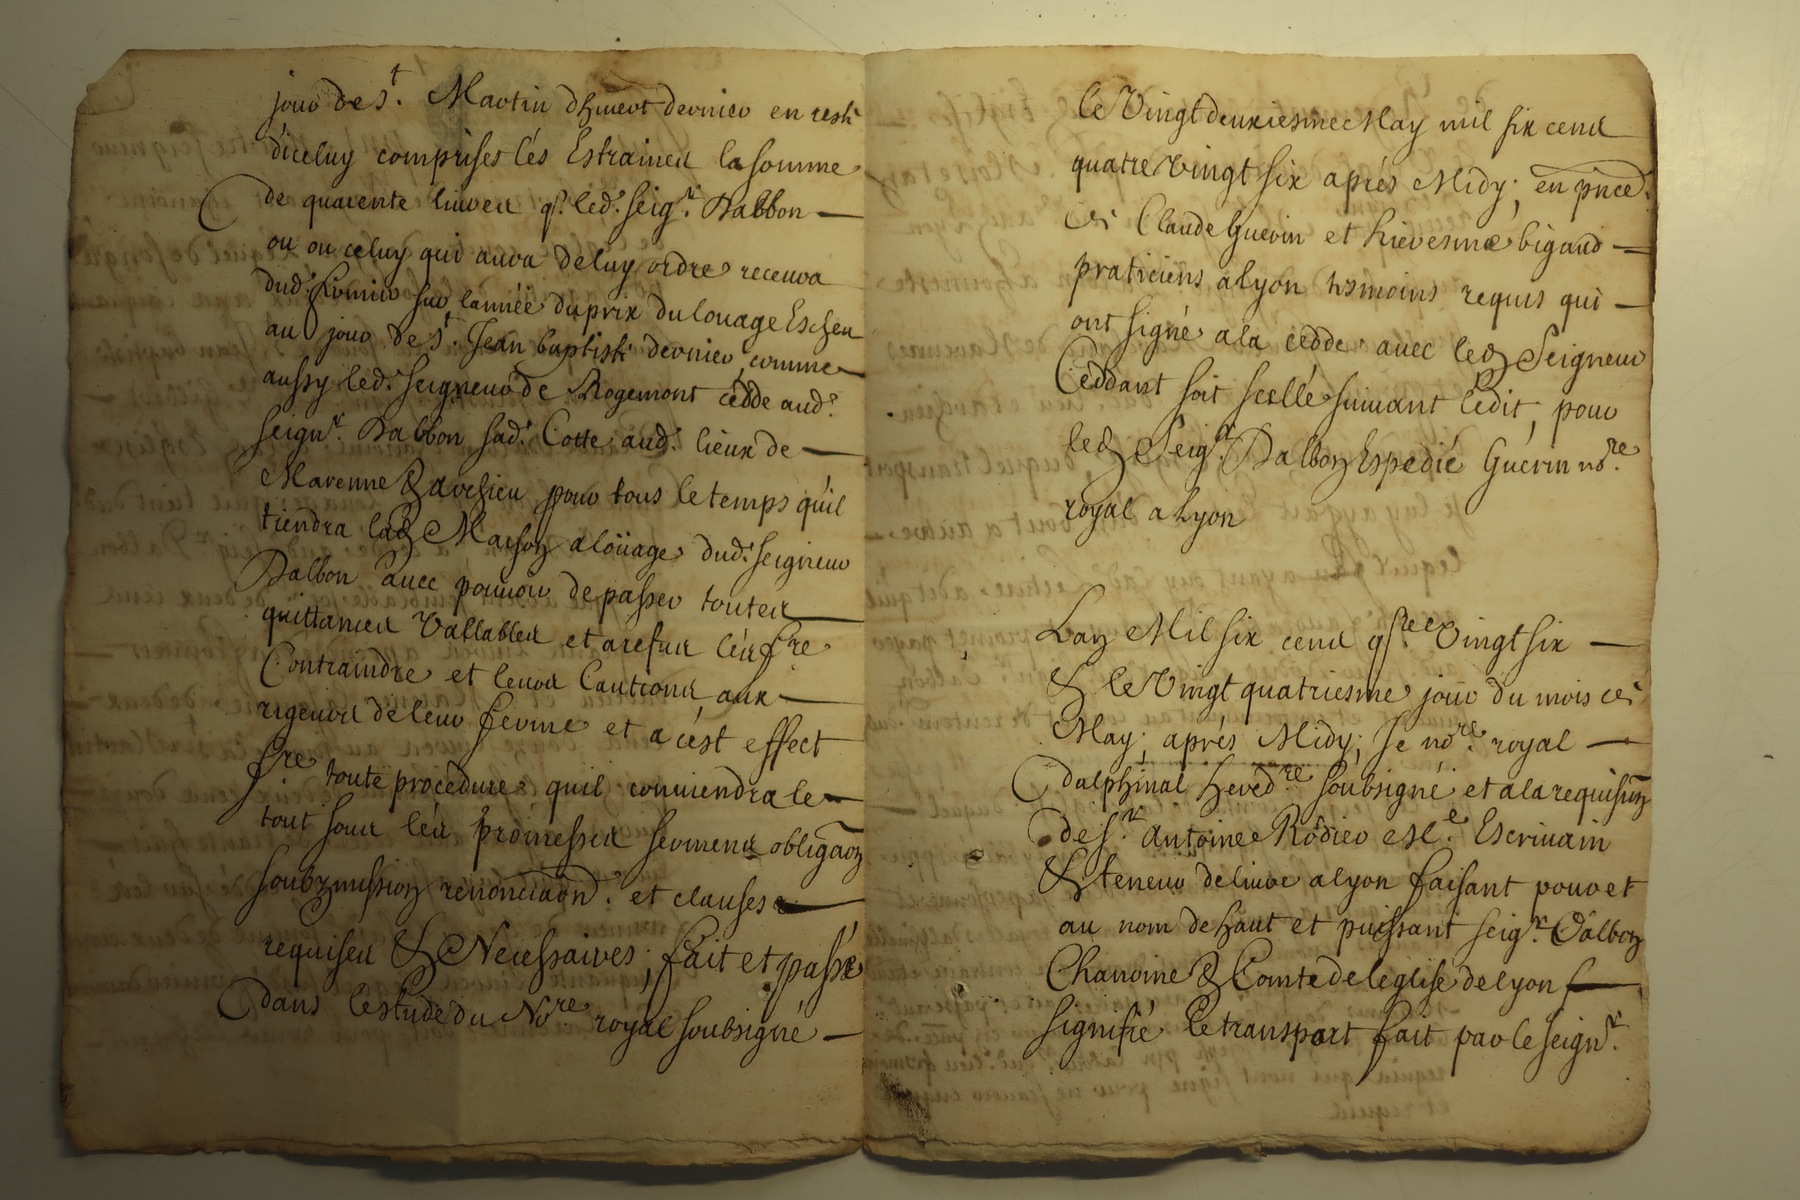 jour de St. Martin dhivert dernier en reste
diceluy comprises lés Estraines la somme
de quarente livres q. led. seigr. Dalbon
ou ou celuy qui aura de luy ordre recevra
dud. sur lannéé du prix du louage Escheu
au jour de St. Jean baptiste dernier, comme
aussy led. seigneur de Rogemont cedde aud.
seignr. Dalbon sad. Cotte aud. lieux de
Marenne & pour tous le temps quil
tiendra lad. Maison a loüage dud. seigneur
Dalbon avec pouvoir de passer toutes
quittances Vallables et a refus lés fre
Contraindre et leurs Cautions aux
rigeurs de leur ferme et a cést effect
fre toute procedure quil conviendra le
tout sous lés promesses sermens obligaon
soubzmission renonciaon. et clauses
requises & Necessaires; fait et passé
dans lestude du Nore royal soubsigné
le Vingt deuxiesme May mil six cens
quatre Vingt six aprés Midy; en pnce
de Claude Guerin et bigaud
praticiens a Lyon tesmoins requis qui
ont signé a la cedde avec led. Seigneur
Ceddant soit scellé suivant lédit, pour
led. Seigr. Dalbon Expedié Guerin nore
royal a Lyon
Lan Mil six cens qtre Vingt six
& le Vingt quatriesme jour du mois de
May; aprés Midy; Je nore royal
dalphinal heredre soubsigné et a la requision
de sr. Antoine Rodier Me Escrivain
& teneur de livre a lyon faisant pour et
au nom de haut et puissant seigr. Dalbon
Chanoine & Comte de léglise de lyon
signifié Le transport fait par le seignr.